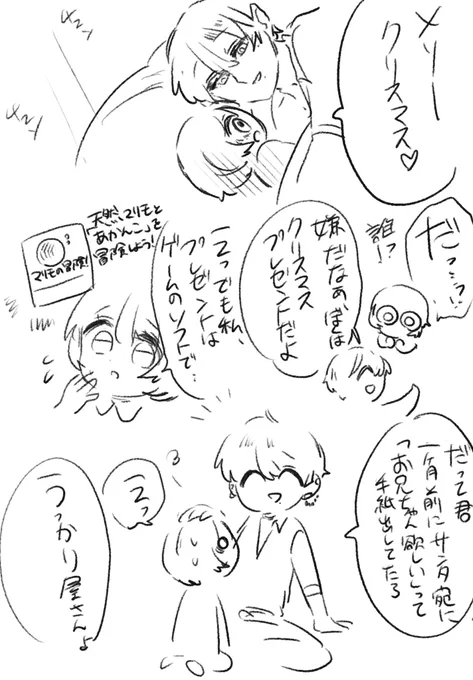 メリー
クリスマス♡
だっ…っ
誰!?
嫌だなぁ、ぼくは
クリスマス
プレゼントだよ
えっでも私、
プレゼントは
ゲームのソフトで…
「天然マリモと
あかんこ」を
冒険しよう!
マリモの冒険!
だって君
一ヶ月前にサンタ宛に
「お兄ちゃん欲しい」って
手紙出してたろ
えっ
うっかり屋さんよ